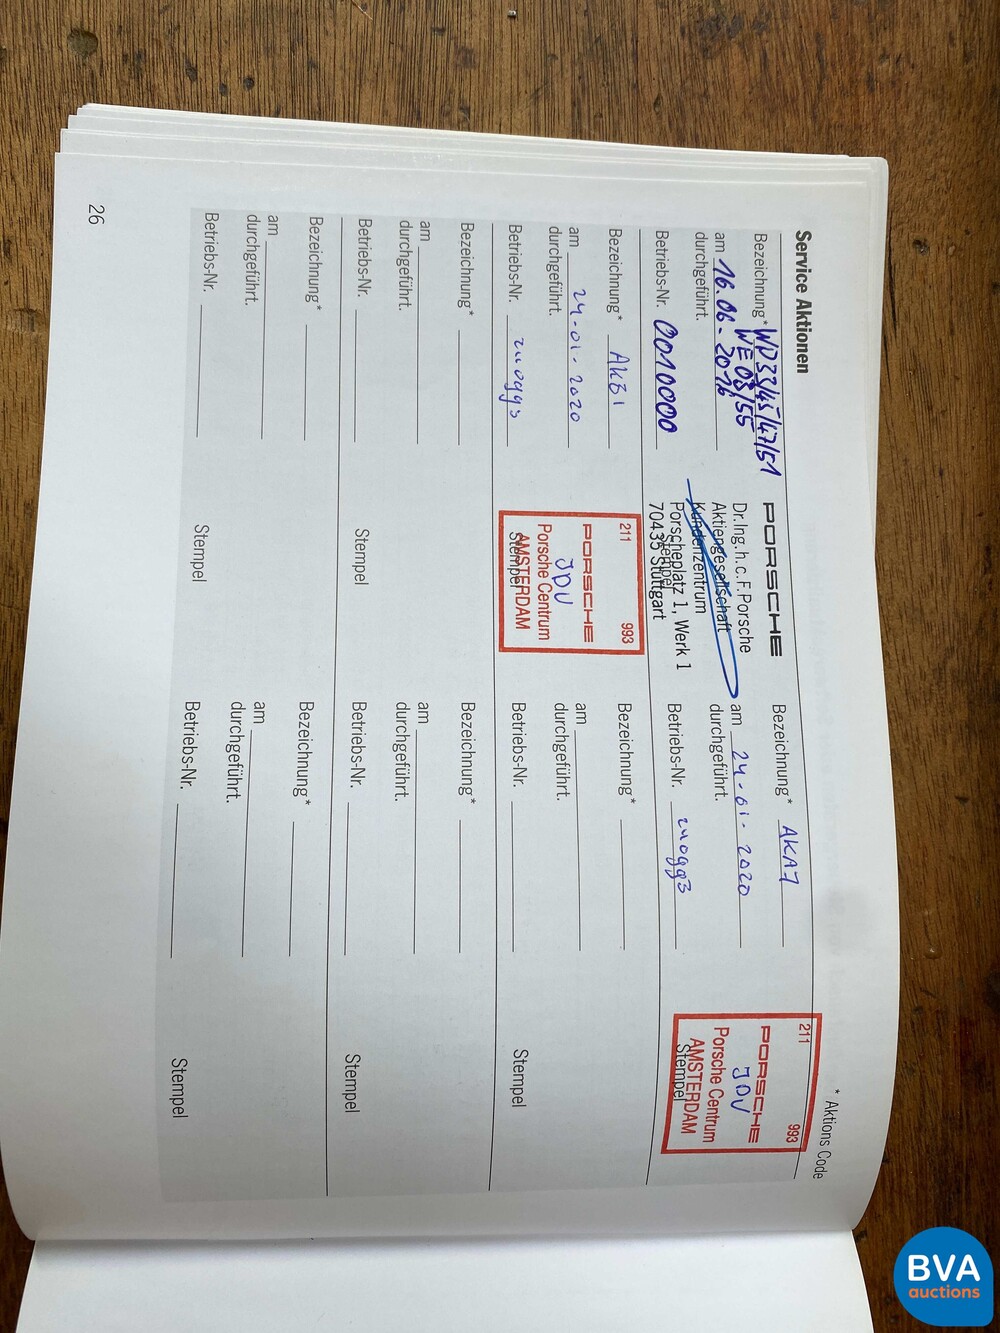 Service Aktionen
* Aktions Code
Bezeichnung* WD33/45/47/51
WE 03/55
am 16.06.2016
durchgeführt.
Betriebs-Nr. 0010000
PORSCHE
Dr.Ing.h.c.F.Porsche
Aktiengesellschaft
Kundenzentrum
Porscheplatz 1, Werk 1
Stempel
70435 Stuttgart
Bezeichnung* AKA7
am 24-01-2020
durchgeführt.
Betriebs-Nr.
211 993
PORSCHE
JDV
Porsche Centrum
AMSTERDAM
Stempel
Bezeichnung*
am 24-01-2020
durchgeführt.
Betriebs-Nr.
211 993
PORSCHE
JDV
Porsche Centrum
AMSTERDAM
Stempel
Bezeichnung*
am
durchgeführt.
Betriebs-Nr.
Stempel
Bezeichnung*
am
durchgeführt.
Betriebs-Nr.
Stempel
Bezeichnung*
am
durchgeführt.
Betriebs-Nr.
Stempel
Bezeichnung*
am
durchgeführt.
Betriebs-Nr.
Stempel
Bezeichnung*
am
durchgeführt.
Betriebs-Nr.
Stempel
26
BVA
auctions